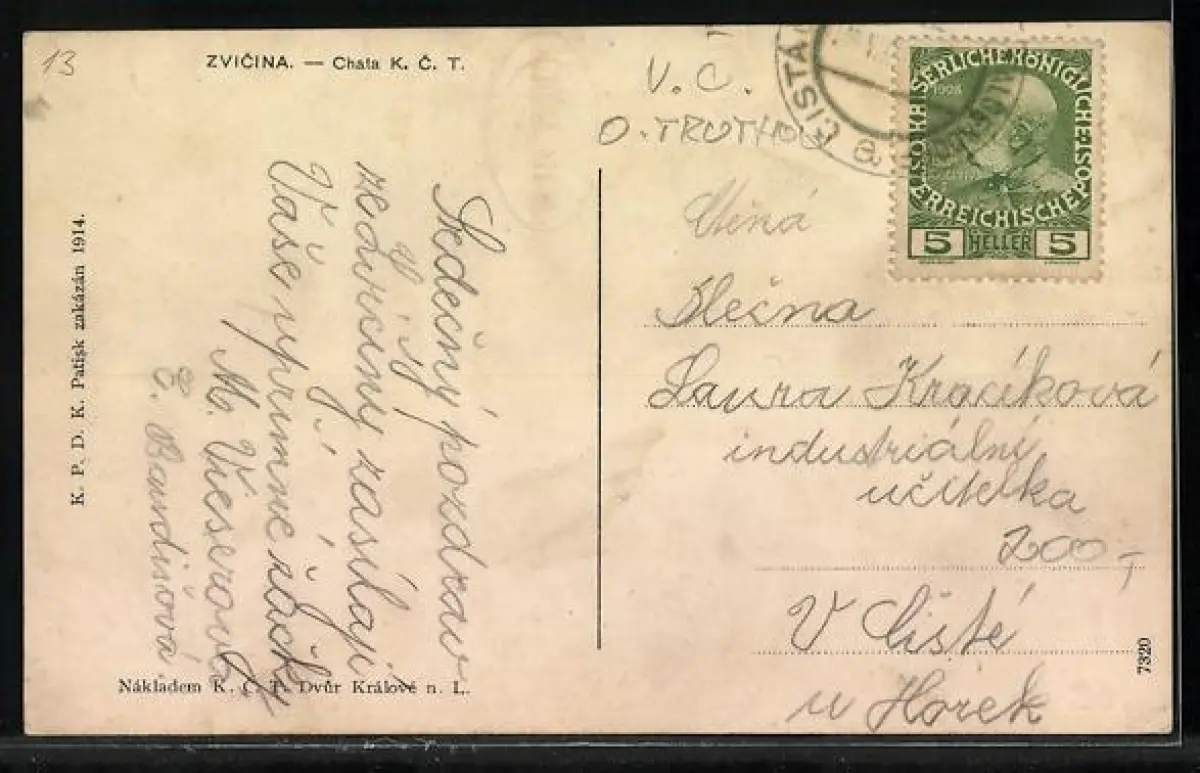 13
ZVIČINA. — Chata K. Č. T.
V. C.
O. TRUTNOV
ČISTÁ
a
KAISERLICHE KÖNIGLICHE
ÖSTERREICHISCHE POST
1908
5 HELLER 5
K. P. D. K. Patisk zakázán 1914.
Srdečný pozdrav
ze Zvičiny zasílají
Vaše upřímné žačky
M. Vieserová
E. Baudišová
Ctěná
Slečna
Laura Kracíková
industriální
učitelka
200,-
V Čisté
u Horek
Nákladem K. Č. T. Dvůr Králové n. L.
7320